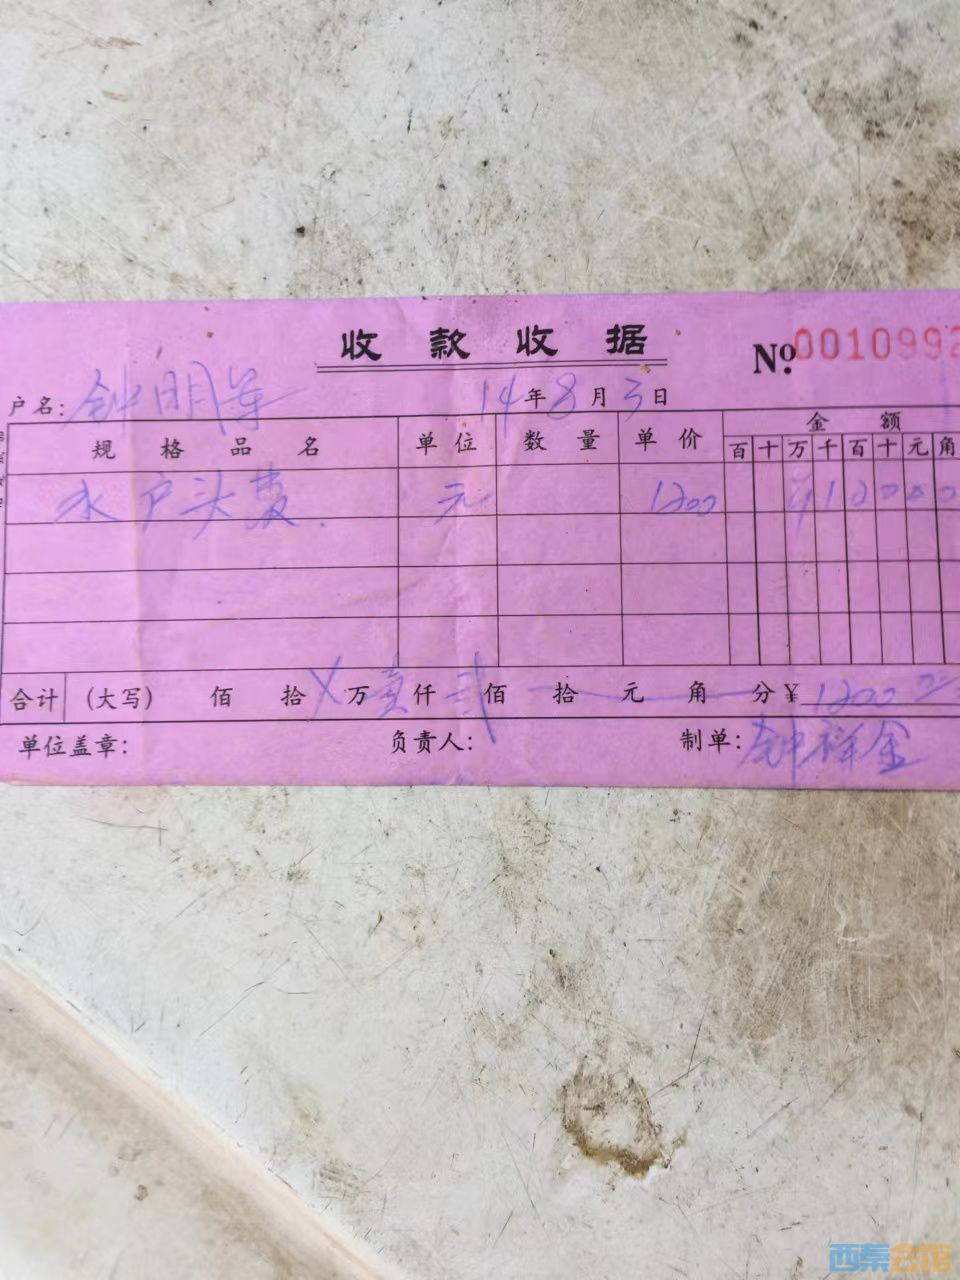 收款收据
No.0010992
户名：钟明 14年8月3日
规格品名 单位 数量 单价 金额
百 十 万 千 百 十 元 角
水户头费. 元 1200 ¥120000
合计 (大写) 佰 拾 X 万 壹 仟 贰 佰 拾 元 角 分 ¥ 1200
单位盖章： 负责人： 制单：钟祥金
西秦会馆